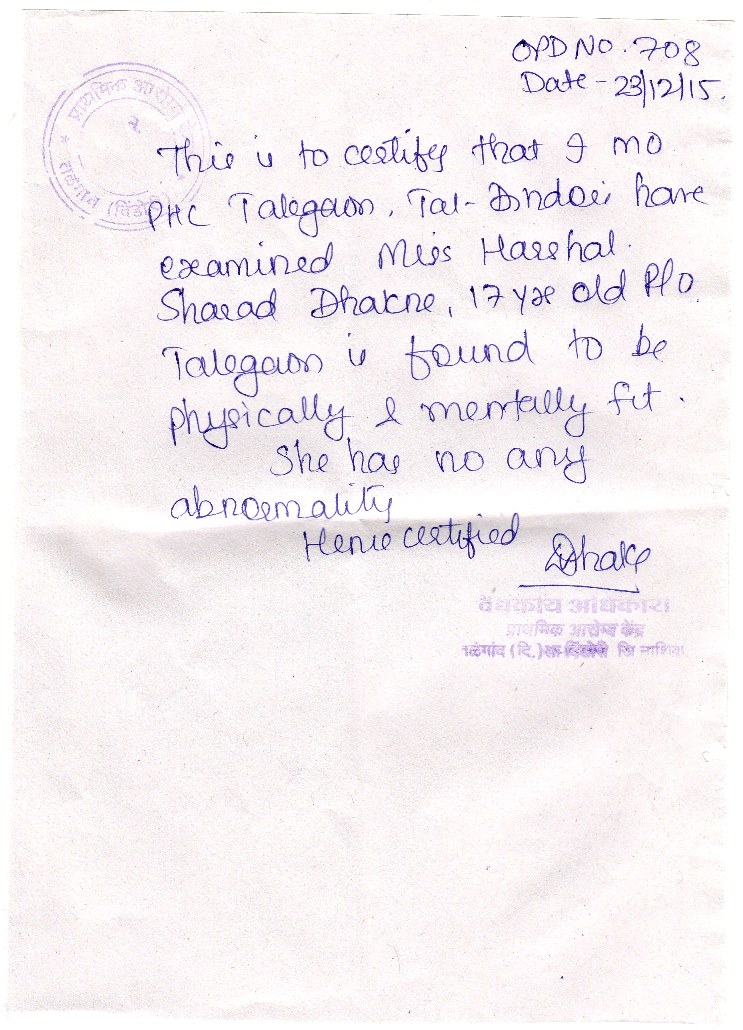 OPD NO. 708
Date - 23/12/15.
प्राथमिक आरोग्य
तळेगाव (दिंडोरी)
This is to certify that I MO
PHC Talegaon, Tal- Dindori have
examined Miss Harshal.
Sharad Dhakne, 17 yrs old R/O
Talegaon is found to be
physically & mentally fit.
She has no any
abnormality
Hence certified
वैद्यकीय अधिकारी
प्राथमिक आरोग्य केंद्र
तळेगांव (दि.) ता. दिंडोरी जि नाशिक